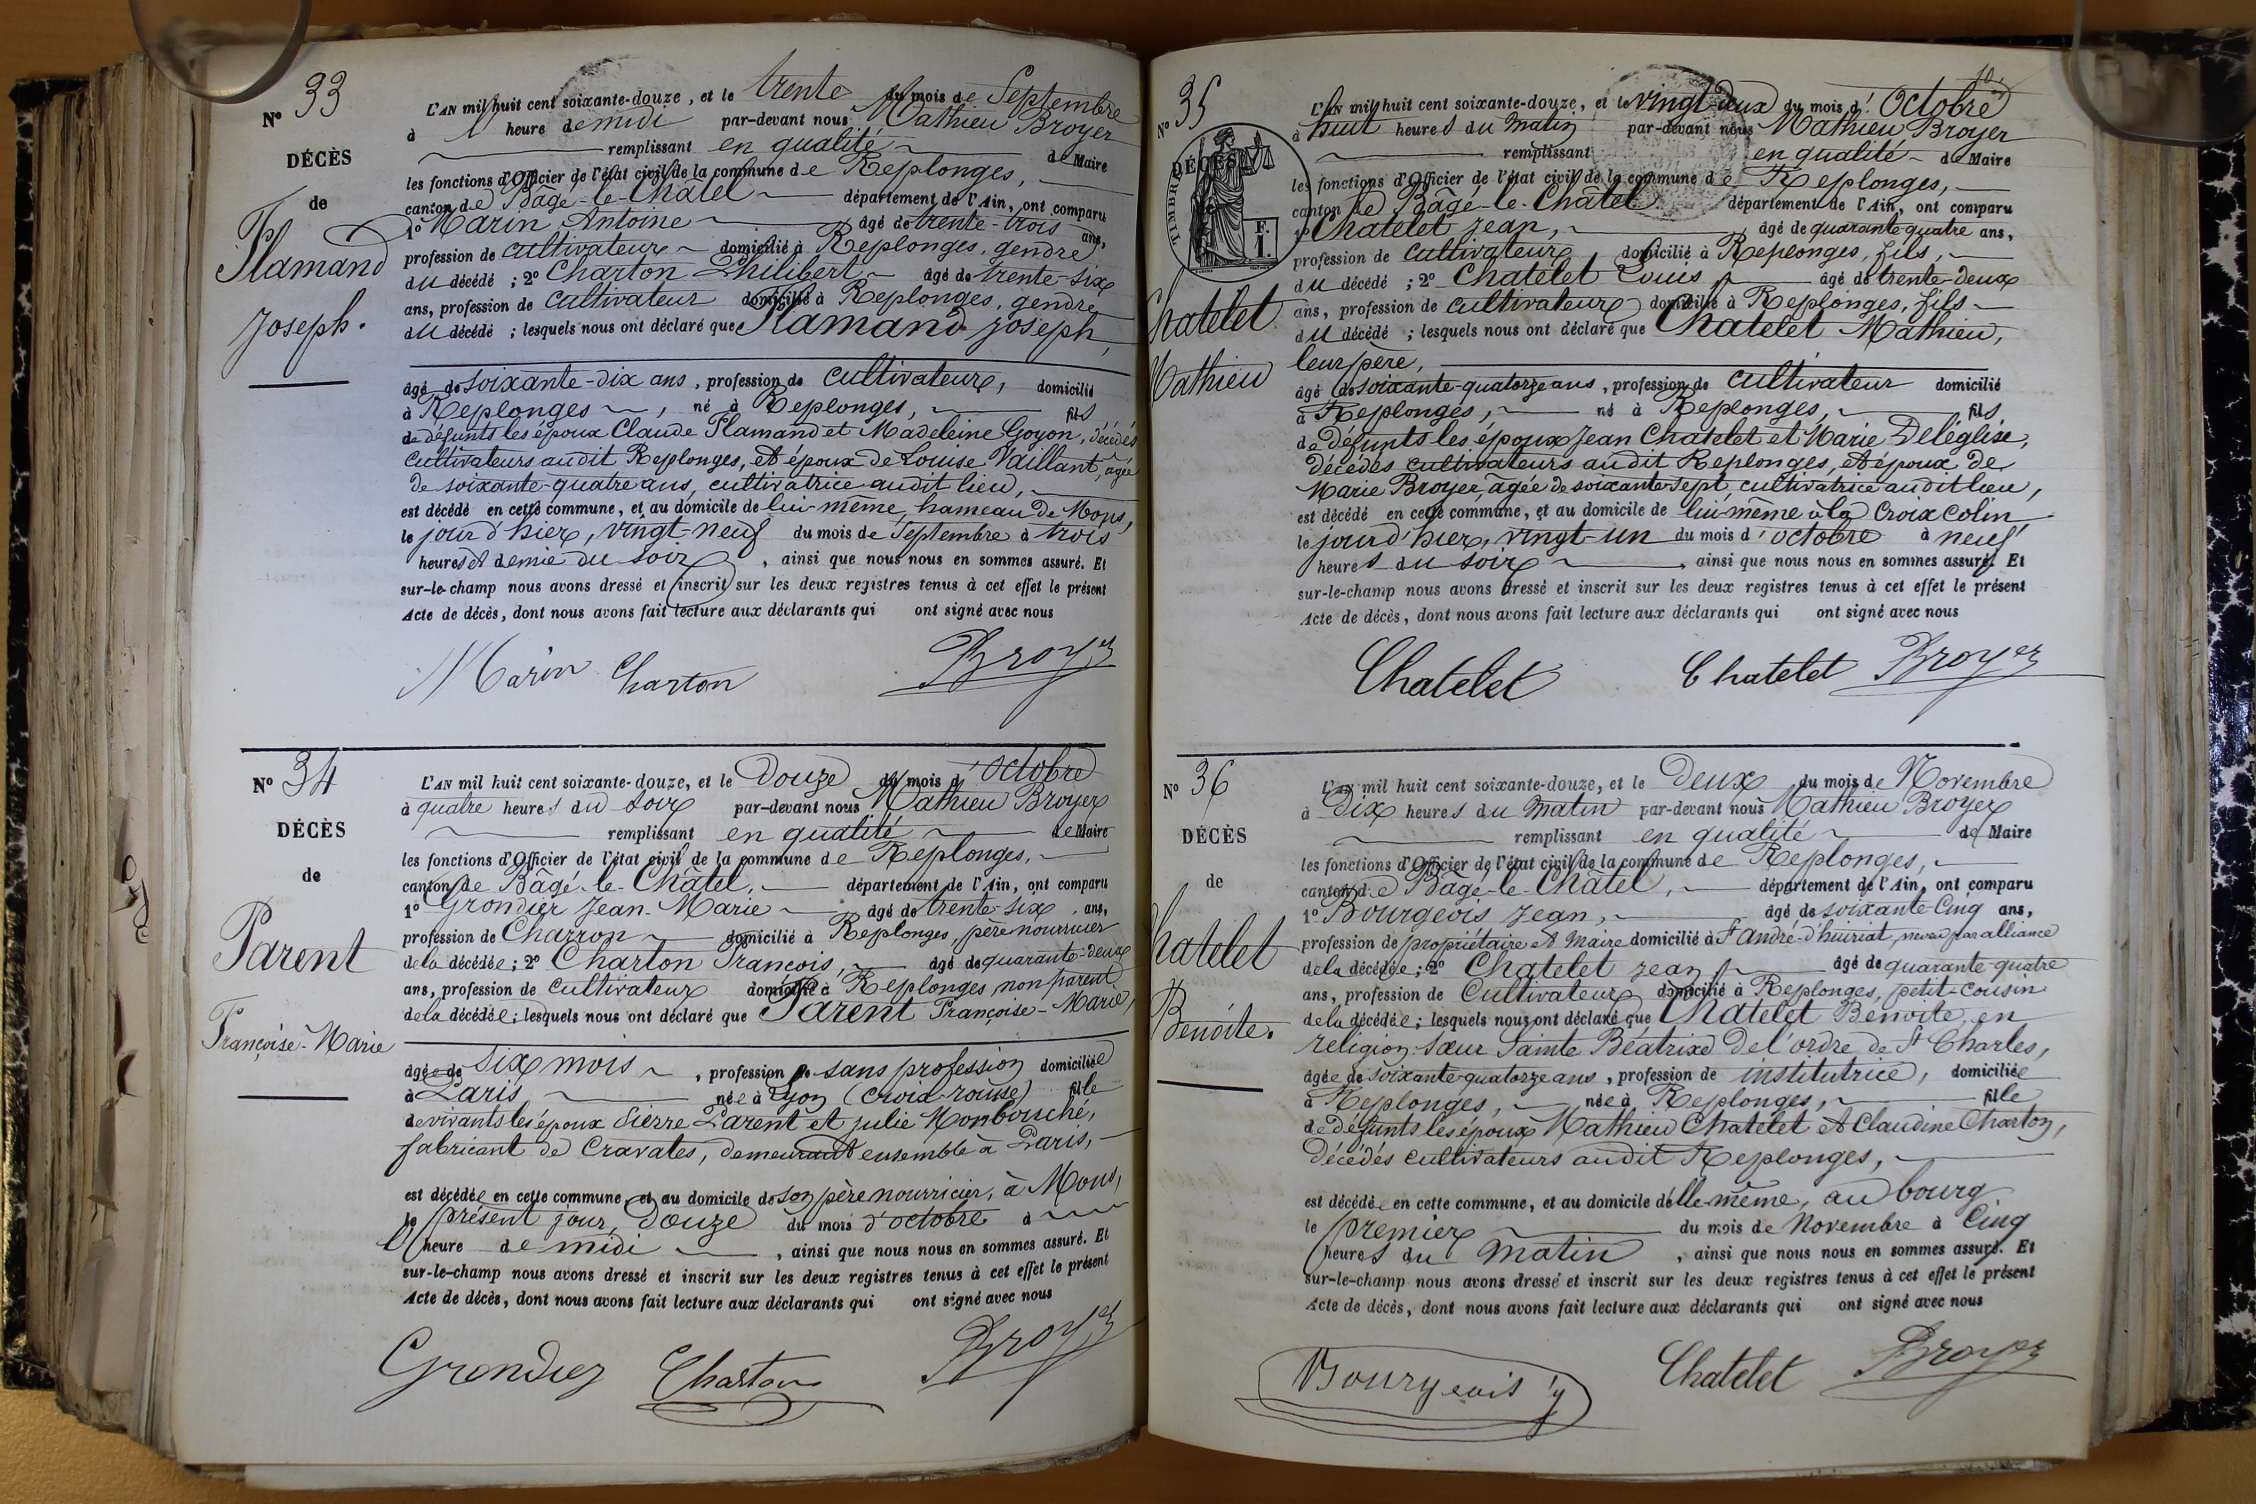 N° 33
DÉCÈS
de
Flamand
Joseph.
L'AN mil huit cent soixante-douze, et le trente du mois de Septembre
à 1 heure de midi par-devant nous Mathieu Broyer
remplissant en qualité de Maire
les fonctions d'Officier de l'état civil de la commune de Replonges,
canton de Bâgé-le-Châtel département de l'Ain, ont comparu
1° Marin Antoine âgé de trente-trois ans,
profession de cultivateur domicilié à Replonges, gendre
du décédé ; 2° Charton Philibert âgé de trente-six
ans, profession de cultivateur domicilié à Replonges, gendre
du décédé ; lesquels nous ont déclaré que Flamand Joseph,
âgé de soixante-dix ans, profession de cultivateur, domicilié
à Replonges, né à Replonges, fils
de défunts les époux Claude Flamand et Madeleine Goyon, décédés
cultivateurs audit Replonges, et époux de Louise Vaillant, âgée
de soixante-quatre ans, cultivatrice audit lieu,
est décédé en cette commune, et au domicile de lui-même, hameau de Mons,
le jour d'hier, vingt-neuf du mois de Septembre à trois
heures et demie du soir, ainsi que nous nous en sommes assuré. Et
sur-le-champ nous avons dressé et inscrit sur les deux registres tenus à cet effet le présent
Acte de décès, dont nous avons fait lecture aux déclarants qui ont signé avec nous
Marin Charton Broyer
N° 34
DÉCÈS
de
Parent
Françoise-Marie
L'AN mil huit cent soixante-douze, et le Douze du mois d'Octobre
à quatre heures du soir par-devant nous Mathieu Broyer
remplissant en qualité de Maire
les fonctions d'Officier de l'état civil de la commune de Replonges,
canton de Bâgé-le-Châtel, département de l'Ain, ont comparu
1° Grondier Jean-Marie âgé de trente-six ans,
profession de Charron domicilié à Replonges, père nourricier
de la décédée ; 2° Charton François, âgé de quarante-deux
ans, profession de cultivateur domicilié à Replonges, non parent
de la décédée ; lesquels nous ont déclaré que Parent Françoise-Marie,
âgée de six mois, profession de sans profession domiciliée
à Paris née à Lyon (croix-rousse) fille
de vivants les époux Pierre Parent et Julie Monbouché,
fabricant de Cravates, demeurant ensemble à Paris,
est décédée en cette commune, et au domicile de son père nourricier, à Mons,
le présent jour, Douze du mois d'octobre à
1 heure de midi, ainsi que nous nous en sommes assuré. Et
sur-le-champ nous avons dressé et inscrit sur les deux registres tenus à cet effet le présent
Acte de décès, dont nous avons fait lecture aux déclarants qui ont signé avec nous
Grondier Charton Broyer
N° 35
DÉCÈS
TIMBRE
F.
1.
Chatelet
Mathieu
L'AN mil huit cent soixante-douze, et le vingt-deux du mois d'Octobre
à huit heures du matin par-devant nous Mathieu Broyer
remplissant en qualité de Maire
les fonctions d'Officier de l'état civil de la commune de Replonges,
canton de Bâgé-le-Châtel département de l'Ain, ont comparu
1° Chatelet Jean, âgé de quarante quatre ans,
profession de cultivateur domicilié à Replonges, fils,
du décédé ; 2° Chatelet Louis âgé de trente-deux
ans, profession de cultivateur domicilié à Replonges, fils
du décédé ; lesquels nous ont déclaré que Chatelet Mathieu,
leur père,
âgé de soixante-quatorze ans, profession de cultivateur domicilié
à Replonges, né à Replonges, fils
de défunts les époux Jean Chatelet et Marie Deléglise,
décédés cultivateurs audit Replonges, et époux de
Marie Broyer, âgée de soixante-sept cultivatrice audit lieu,
est décédé en cette commune, et au domicile de lui-même à la Croix Colin
le jour d'hier, vingt-un du mois d'octobre à neuf
heures du soir, ainsi que nous nous en sommes assuré. Et
sur-le-champ nous avons dressé et inscrit sur les deux registres tenus à cet effet le présent
Acte de décès, dont nous avons fait lecture aux déclarants qui ont signé avec nous
Chatelet Chatelet Broyer
N° 36
DÉCÈS
de
Chatelet
Benoite.
L'AN mil huit cent soixante-douze, et le Deux du mois de Novembre
à Dix heures du matin par-devant nous Mathieu Broyer
remplissant en qualité de Maire
les fonctions d'Officier de l'état civil de la commune de Replonges,
canton de Bâgé-le-Châtel, département de l'Ain, ont comparu
1° Bourgeois Jean, âgé de soixante-Cinq ans,
profession de propriétaire et Maire domicilié à St André-d'huiriat, neveu par alliance
de la décédée ; 2° Chatelet Jean âgé de quarante-quatre
ans, profession de Cultivateur domicilié à Replonges, petit-cousin
de la décédée ; lesquels nous ont déclaré que Chatelet Benoite, en
religion sœur Sainte Béatrixe de l'ordre de St Charles,
âgée de soixante-quatorze ans, profession de institutrice, domiciliée
à Replonges, née à Replonges, fille
de défunts les époux Mathieu Chatelet et Claudine Charton,
Décédés cultivateurs audit Replonges,
est décédée en cette commune, et au domicile d'elle-même, au bourg
le premier du mois de Novembre à Cinq
heures du matin, ainsi que nous nous en sommes assuré. Et
sur-le-champ nous avons dressé et inscrit sur les deux registres tenus à cet effet le présent
Acte de décès, dont nous avons fait lecture aux déclarants qui ont signé avec nous
Bourgeois Chatelet Broyer